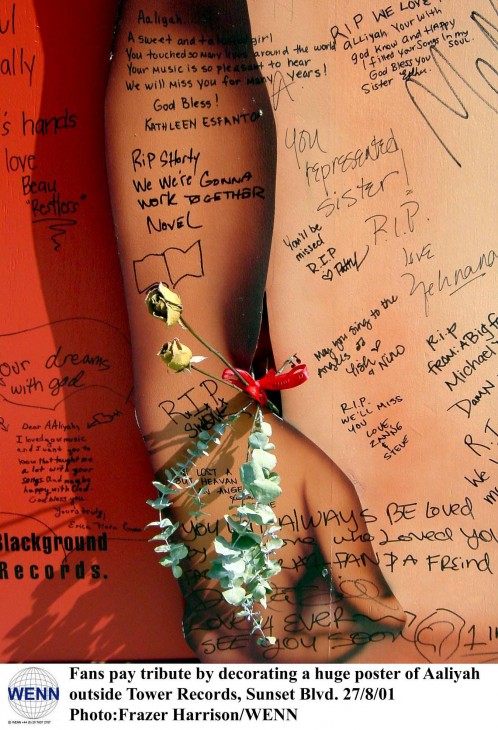 Aaliyah
A sweet and talented girl
You touched so many lives around the world
Your music is so pleasant to hear
We will miss you for many years!
God Bless!
KATHLEEN ESFANTO
RIP WE LOVE
aLLiyah Your With
god Know and HAPPY
I fixed Your Songs in my
SOUL.
God Bless you
Sister
ally
's hands
love
Beau
"Restless"
RIP SHorty
We We're GONNA
WORK TOGETHER
NOVEL
You
represented
sister!
R.I.P.
You'll be
missed
R.I.P
love
May you sing to the
angels
Yish & Nino
R.I.P.
WE'LL MISS
YOU
LOVE,
STEVE
Rip
From: A Big F
Michael
Damn
We
our dreams
with god
R.I.P.
Dear AAliyah,
I loved your music
and I want you to
know that taught me
a lot with your
songs. And may be
happy with God.
God bless you.
Yours truly,
LOST A
BUT HEAVAN
ANGEL
YOU ALWAYS BE LOVED
who LOVED YOU
FAN & A FREIND
4 EVER
SEE YOU SOON
Blackground
Records.
WENN
Fans pay tribute by decorating a huge poster of Aaliyah
outside Tower Records, Sunset Blvd. 27/8/01
Photo:Frazer Harrison/WENN